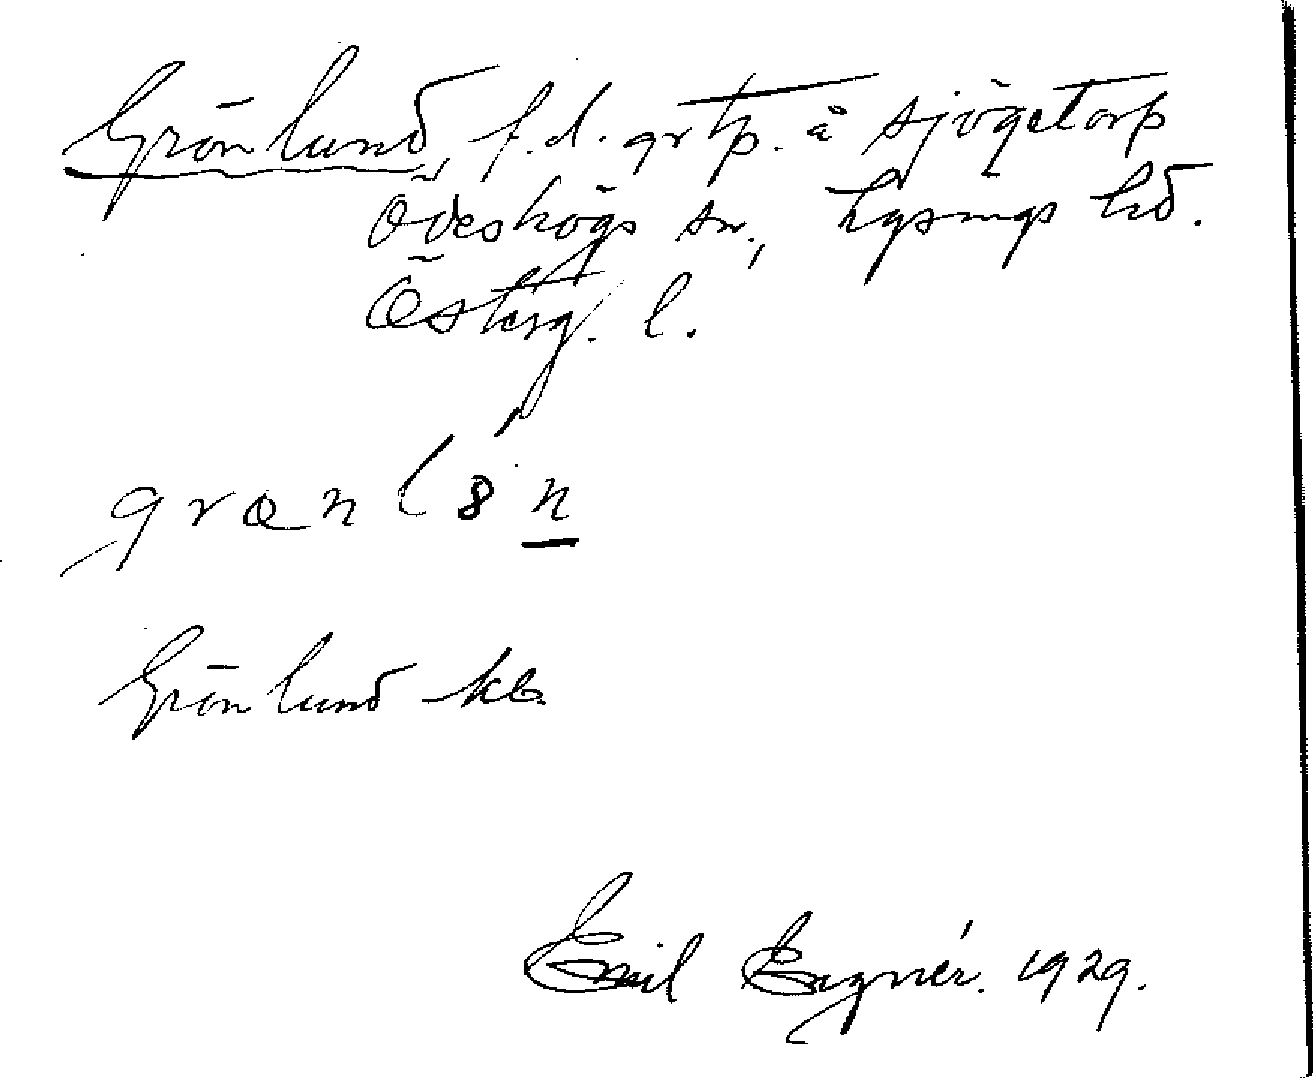 Grönlund, f.d. grtp. å Sjögetorp
Ödeshögs sn., Lysings hd.
Österg. l.
grœnl8n
Grönlund kb.
Emil 1929.